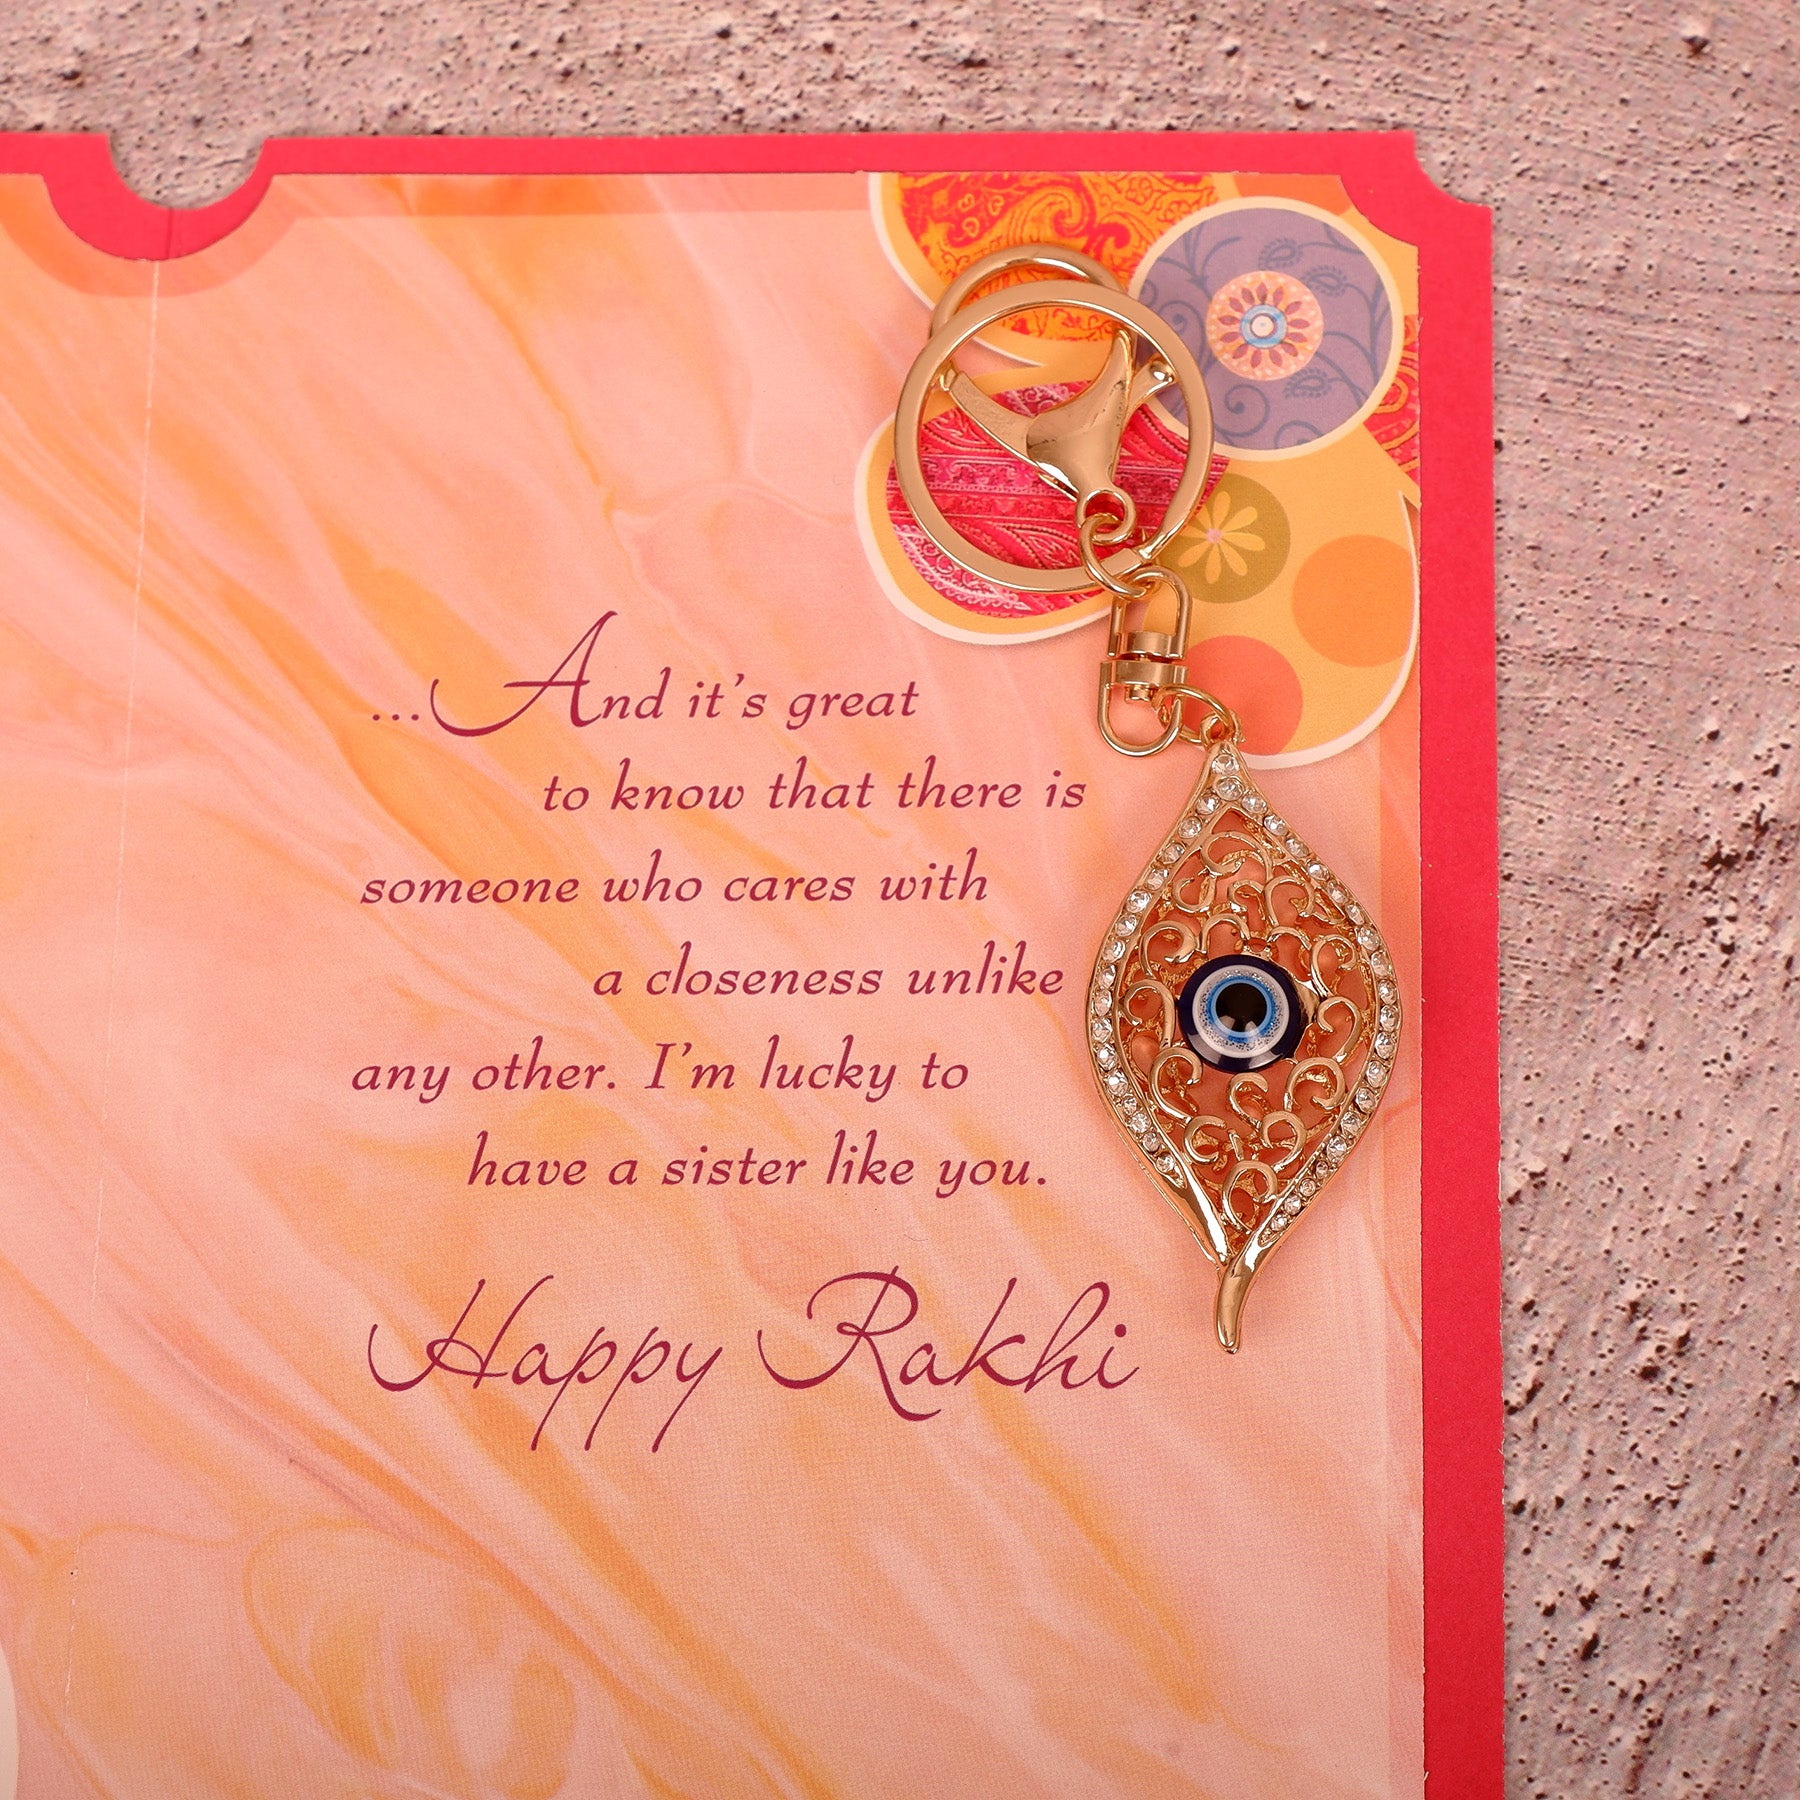 ...And it's great
to know that there is
someone who cares with
a closeness unlike
any other. I'm lucky to
have a sister like you.
Happy Rakhi